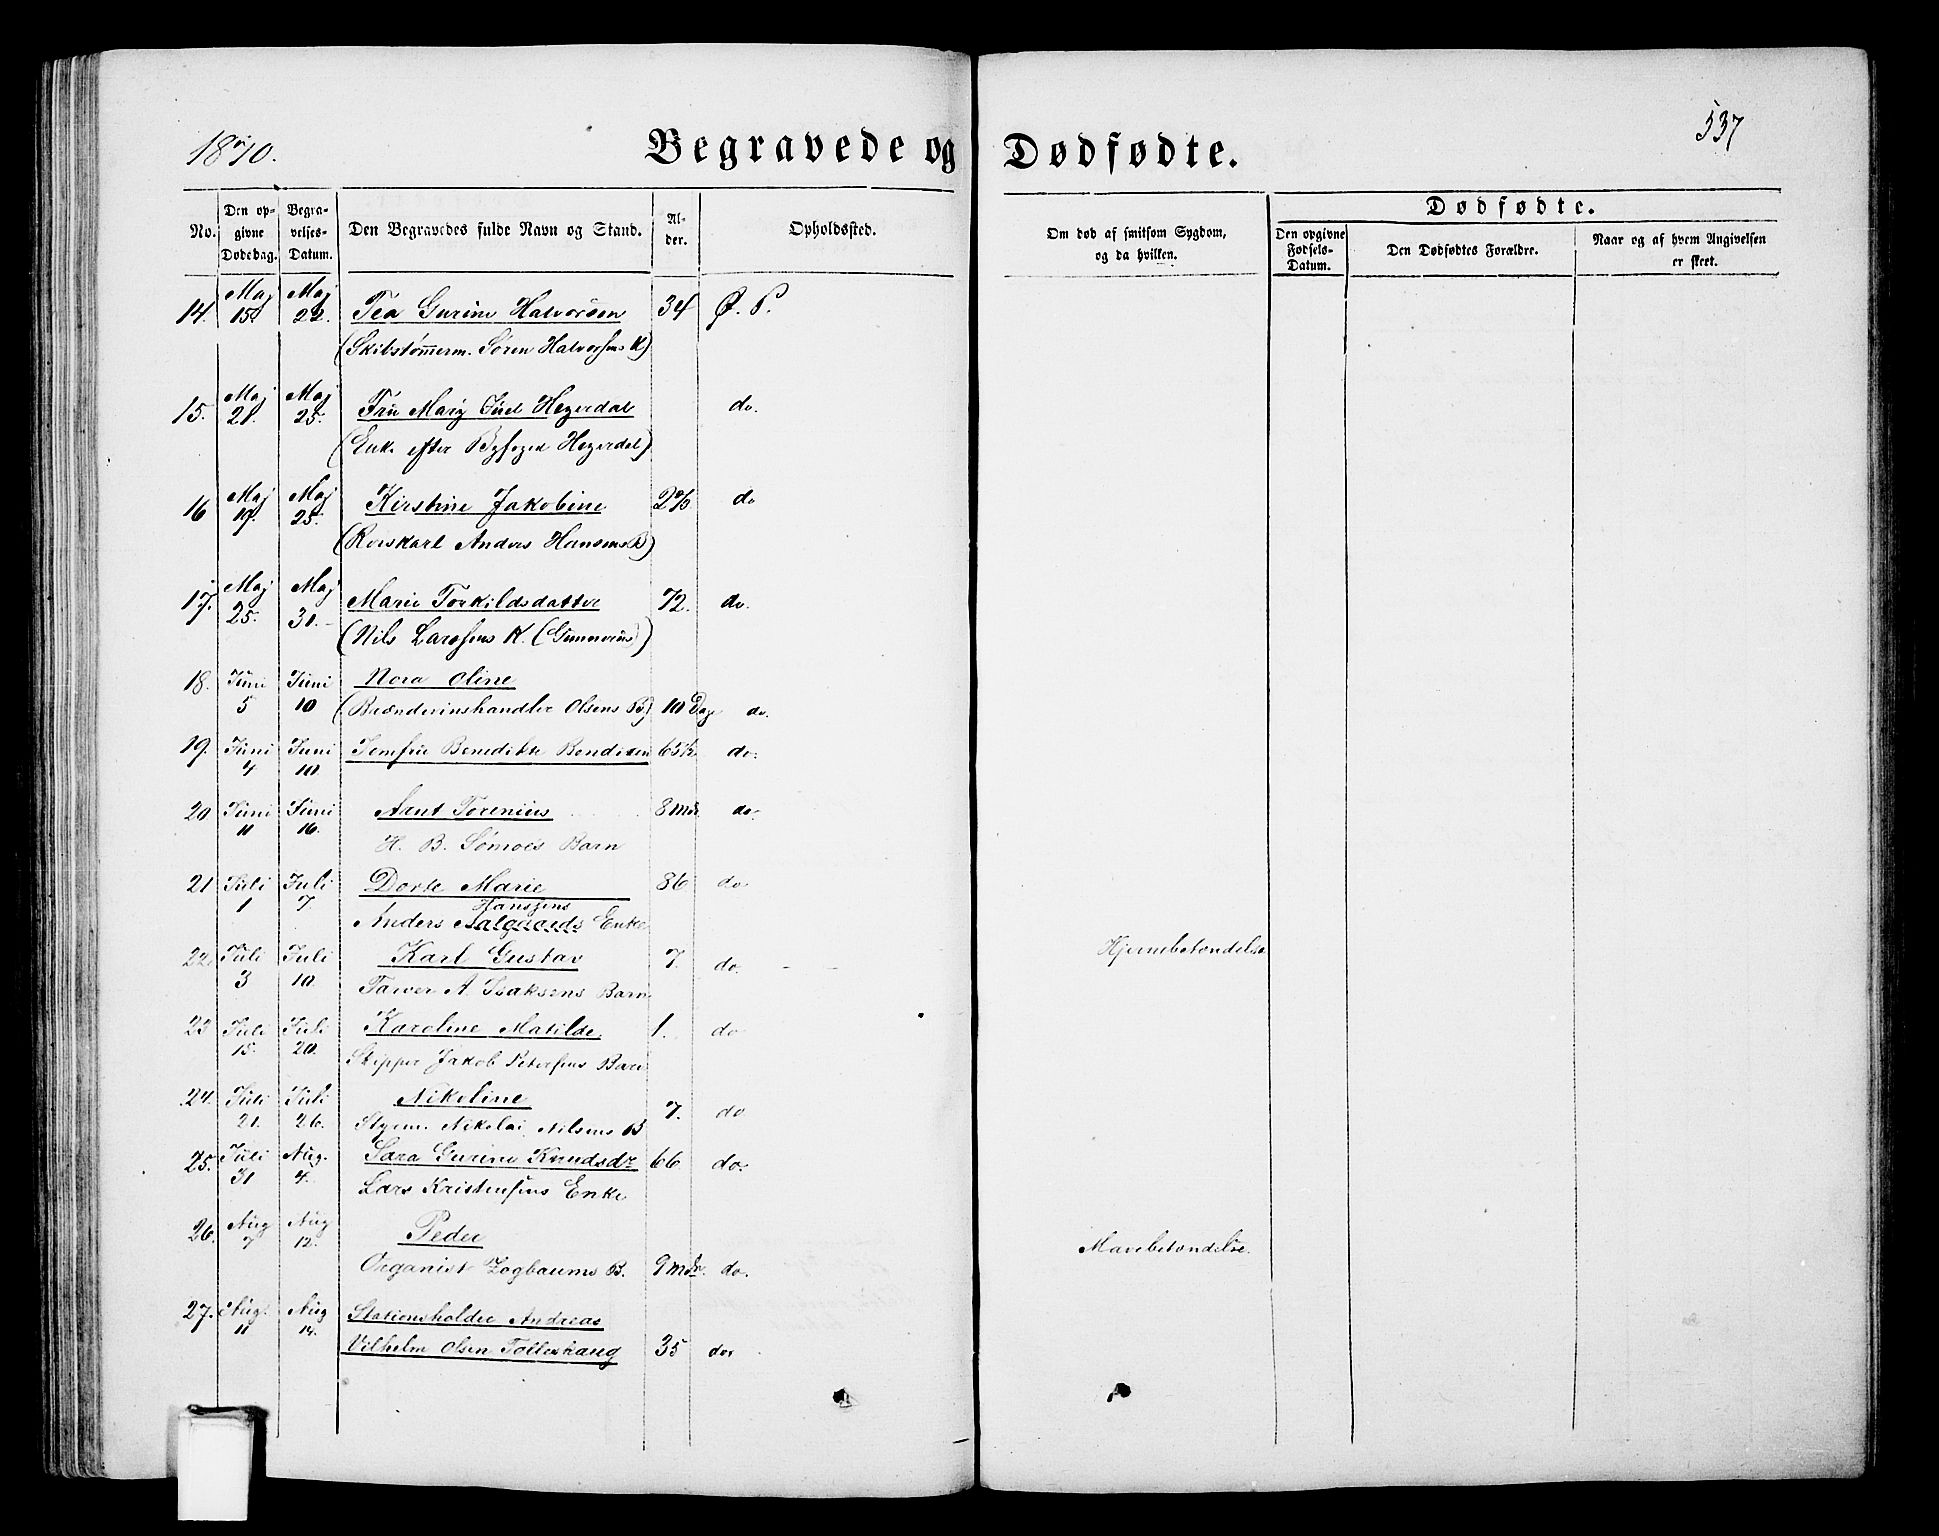 1870.
Begravede og Dødfødte.
537
No.
Den opgivne Dødsdag.
Begravelses-Datum.
Den Begravedes fulde Navn og Stand.
Alder.
Opholdssted.
Om død af smitsom Sygdom, og da hvilken.
Dødfødte.
Den opgivne Fødsels-Datum.
Den Dødfødtes Forældre.
Naar og af hvem Angivelsen er skeet.
14. Maj 15. Maj 22. Tea Gurine Halvorsen 34 Ø. P.
(Skibstømmerm. Sören Halvorsens K)
15. Maj 21. Maj 25. Frü Mary Jüel Hegerdal do.
(Enke efter Byfoged Hegerdal)
16 Maj 19. Maj 25. Kirstine Jakobine do
(Rorskarl Anders Hansens B)
17. Maj 25. Maj 30. Marie Torkildsdatter 72. do.
(Nils Larssens K. (Gunnerius))
18. Jüni 5 Jüni 10 Nora Oline
(Brændevinshandler Olsens B) 10 Dage do.
19. Jüni 4 Juni 10. Jomfrü Benedikte Bendixen do.
20 Jüni 11 Jüni 16. Arnt Torenius 8 Mdr. do.
H. B. Sømoes Barn
21 Juli 1 Juli 7. Dorte Marie 86 do
Hanssens
Anders Aalgaards Enke
22. Juli 3 Juli 10. Karl Gustav 7. do. Hjernebetændelse
Farver A. Isaksens Barn
23 Juli 15. Juli 20. Karoline Matilde. 1. do
Skipper Jakob Petersens Barn
24. Juli 21. Juli 26. Nikoline 7. do
Styrm. Nikolai Nilsens B
25. Juli 31 Aug. 4. Sara Gurine Knudsdr 66 do.
Lars Kristensens Enke
26. Aug 7 Aug 12. Peder Mavebetændelse.
Organist Zogbaums B. 9 Mdr. do.
27. Aug. 11 Aug 14. Stationsholder Andreas
Vilhelm Olsen Tolleshaug 35 do.